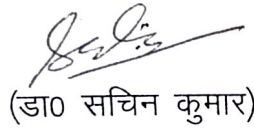 (डा0 सचिन कुमार)